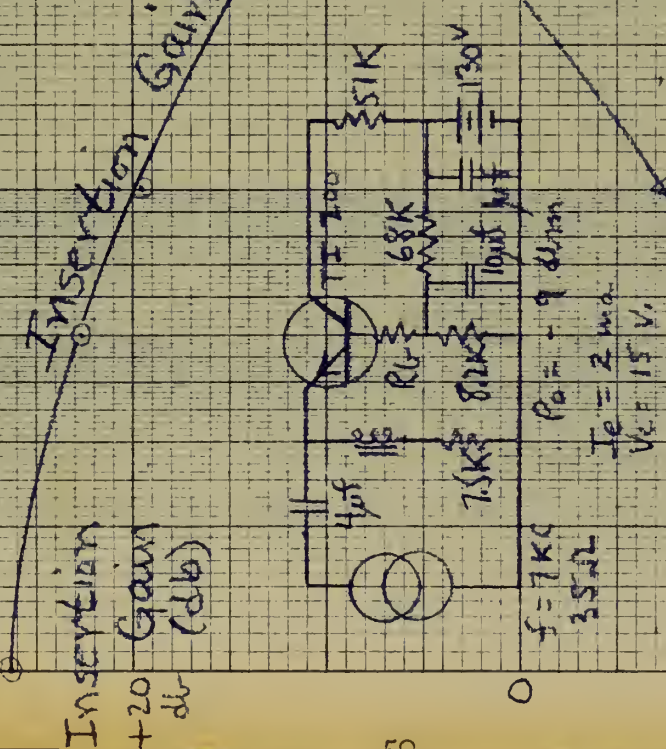 Insertion Gain
Insertion
Gain
(db)
+20
db
0
51K
130V
TI 200
68K
10μf
1μf
Rb
7.5K
4μf
f = 7 KC
Po = - 9 dbm
Ie = 2 ma
Vc = 15 V.